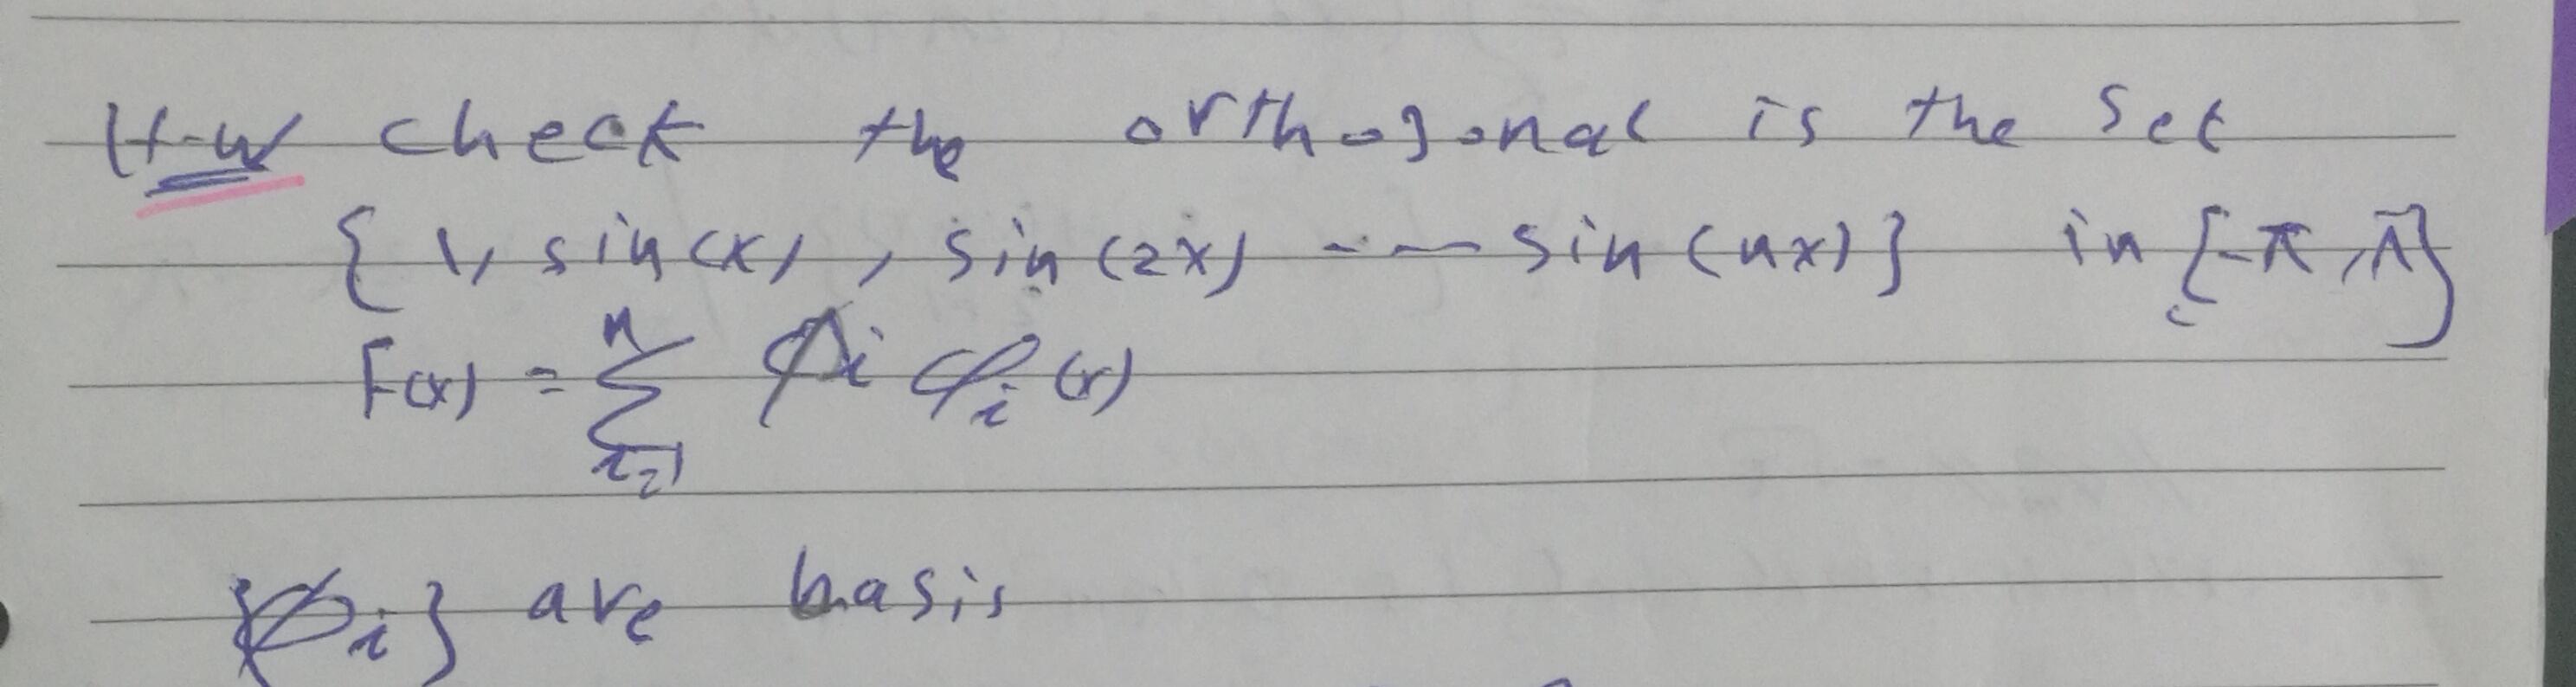 H-W check the orthogonal is the set
{ 1, sin(x), sin(2x) ---- sin(nx)} in [-π, π]
F(x) = n∑i=1 ϕi φi(x)
{Øi} are basis